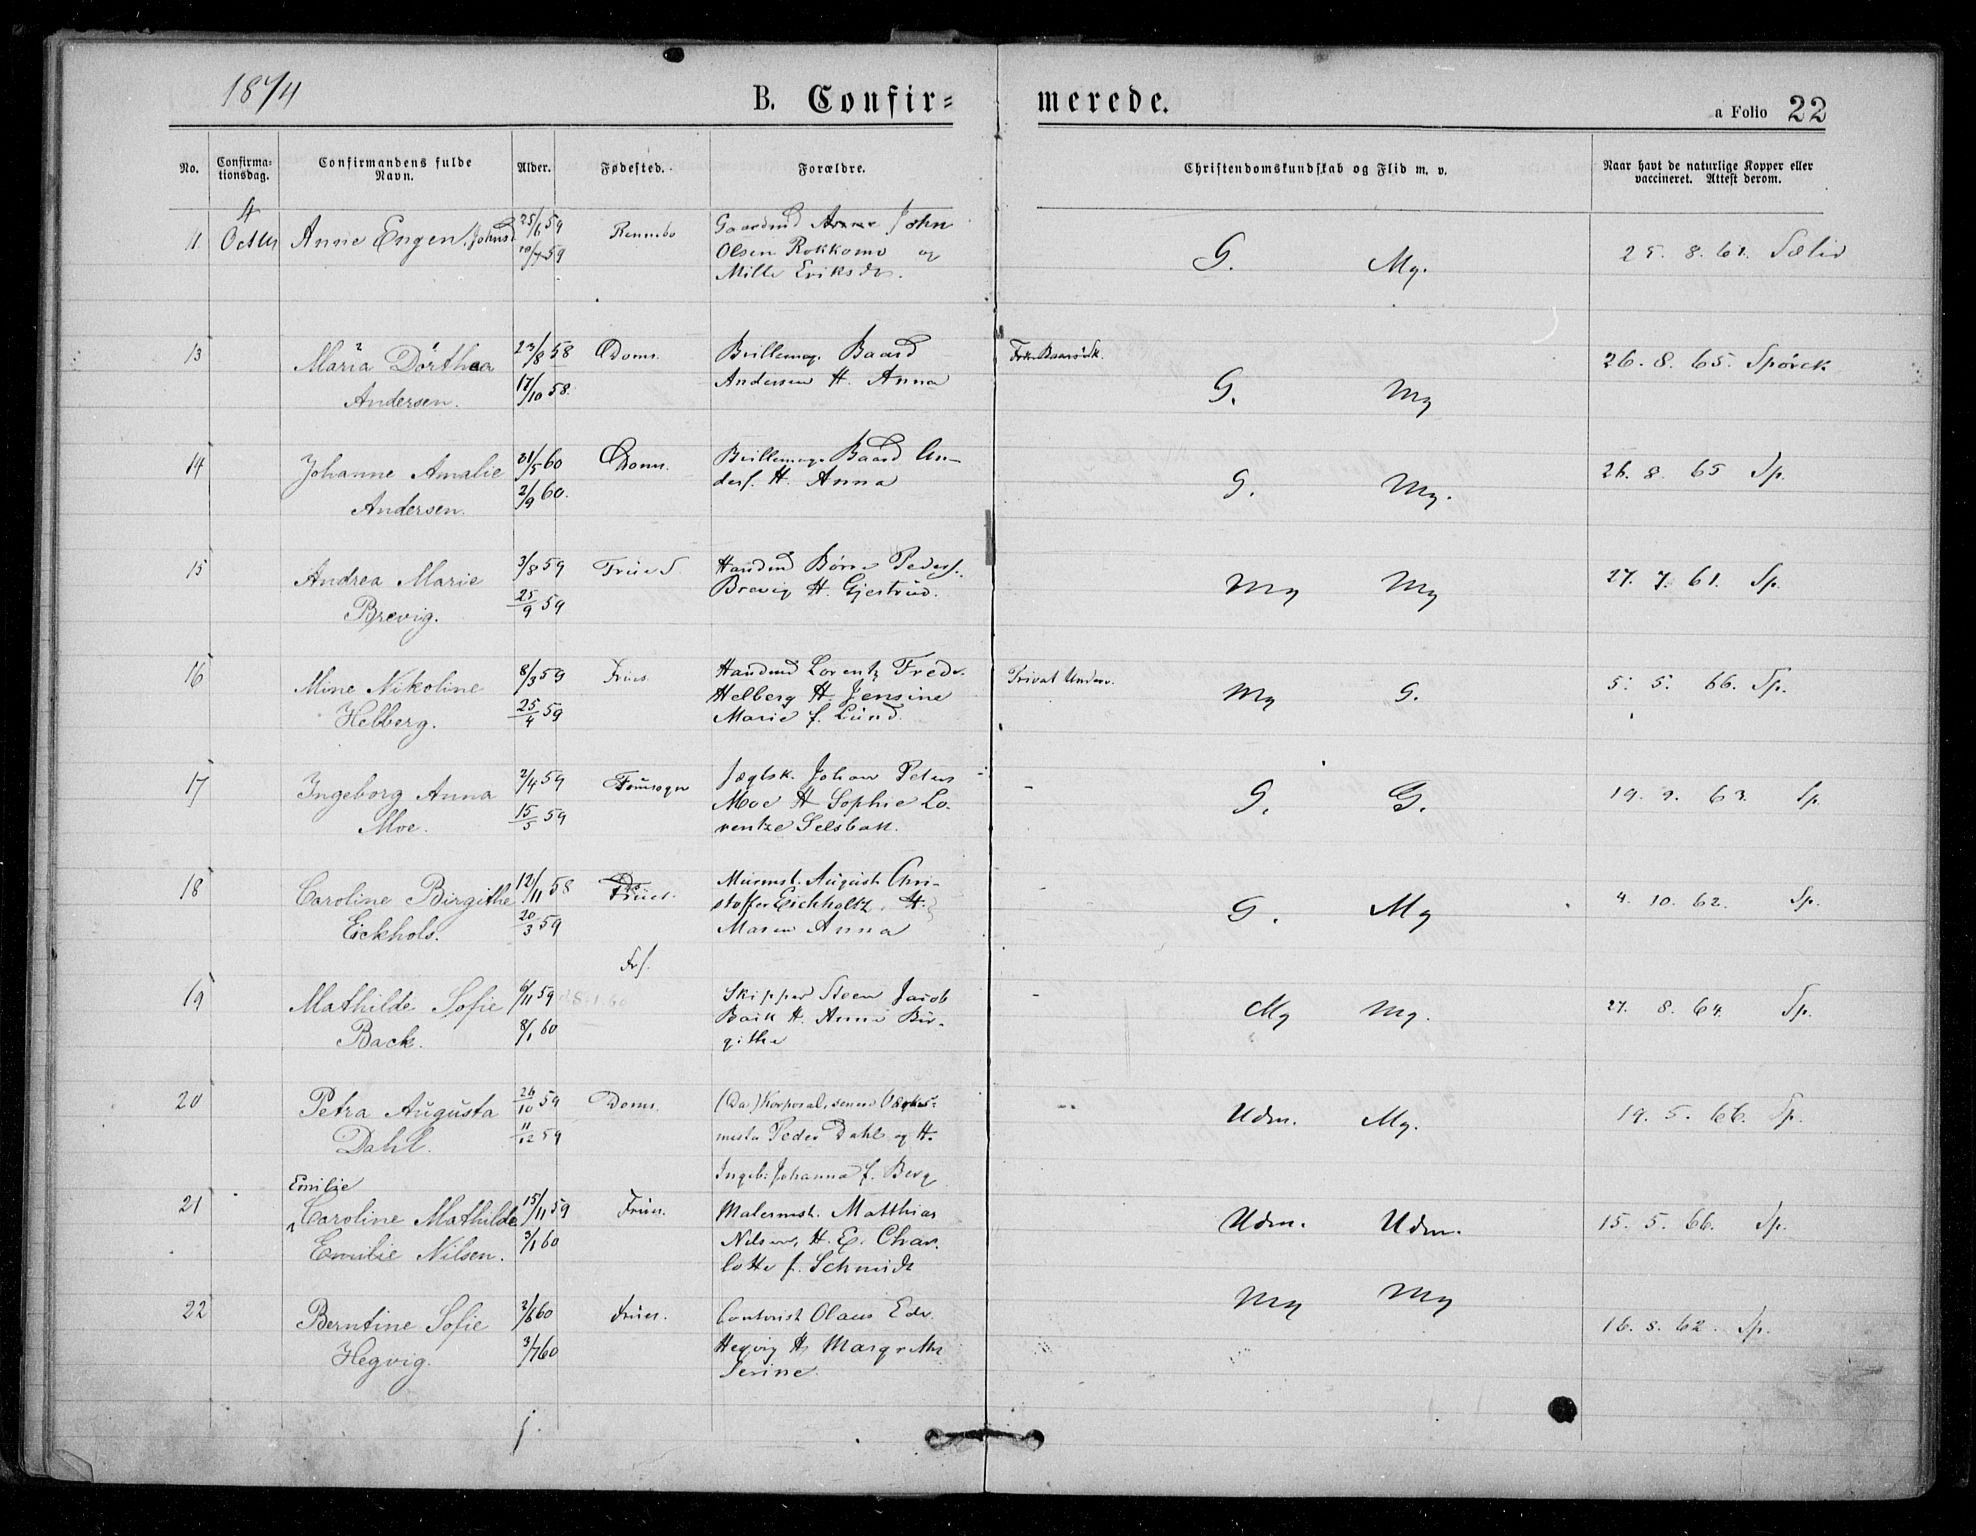 1874 B. Confir= merede. a Folio 22
No. Confirma-tionsdag. Confirmandens fulde Navn. Alder. Fødested. Forældre. Christendomskundskab og Flid m. v. Naar havt de naturlige Kopper eller vaccineret. Attest derom.
4
11 Octbr Anne Engen Johnsd 25/6 59 Rennebo Gaardmd John
10/7 59 Olsen Rokkomo og G. Mg. 25. 8. 61. Sælid
Mille Eriksdr.
13 Maria Dorthea 23/8 58 Doms. Brillemag. Baard 26. 8. 65. Spörck
Andersen. 17/10 58. Andersen H. Anna G. Mg
14 Johanne Amalie 31/5 60 Doms. Brillemag. Baard An- 26. 8. 65 Sp.
Andersen. 2/9 60. ders. H. Anna G. Mg.
15 Andrea Marie 3/8 59 Frue S. Handmd Peders. 27. 7. 61. Sp.
Brevig. 25/9 59 Brevig H. Gjertrud. Mg Mg
16 Mine Nikoline 8/3 59 Frues Handmd Lorentz Fredr. Privat Underv. 5. 5. 66. Sp.
Helberg. 25/4 59 Helberg H. Jensine Mg G.
Marie f. Lund.
17 Ingeborg Anna 2/4 59 Jægtsk. Johan Peter
Moe. 15/5 59 Moe H Sophie Lo- G. G. 19. 9. 63. Sp.
rentze Selsbak.
18 Caroline Birgithe 12/11 58 Frues. Murmst. August Chri-
Eickhols. 20/3 59 stoffer Eichholtz. H. G. Mg 4. 10. 62. Sp.
Maren Anna
Frs.
19 Mathilde Sofie 6/11 59 Skipper Steen Jacob Mg Mg. 27. 8. 64. Sp.
Back. 8/1 60 Back H. Anne Bir-
githe
20 Petra Augusta 26/10 59 Doms. (Da.) Korporal, senere
Dahl. 11/12 59 Peder Dahl og H. Udm. Mg. 19. 5. 66. Sp.
Ingeb. Johanna f. Berg
Emilie
21 Caroline Mathilde 15/11 59 Frues. Malermst. Matthias
Emilie Nilsen. 3/1 60 Nilsen, H. E. Char- Udm. Udm. 15. 5. 66. Sp.
lotte f. Schmidt
22 Berntine Sofie 2/6 60 Frues. Contorist Olaus Edv. Mg Mg
Hegvig. 3/7 60 Hegvig H. Margrethe 16. 8. 62. Sp.
Serine.